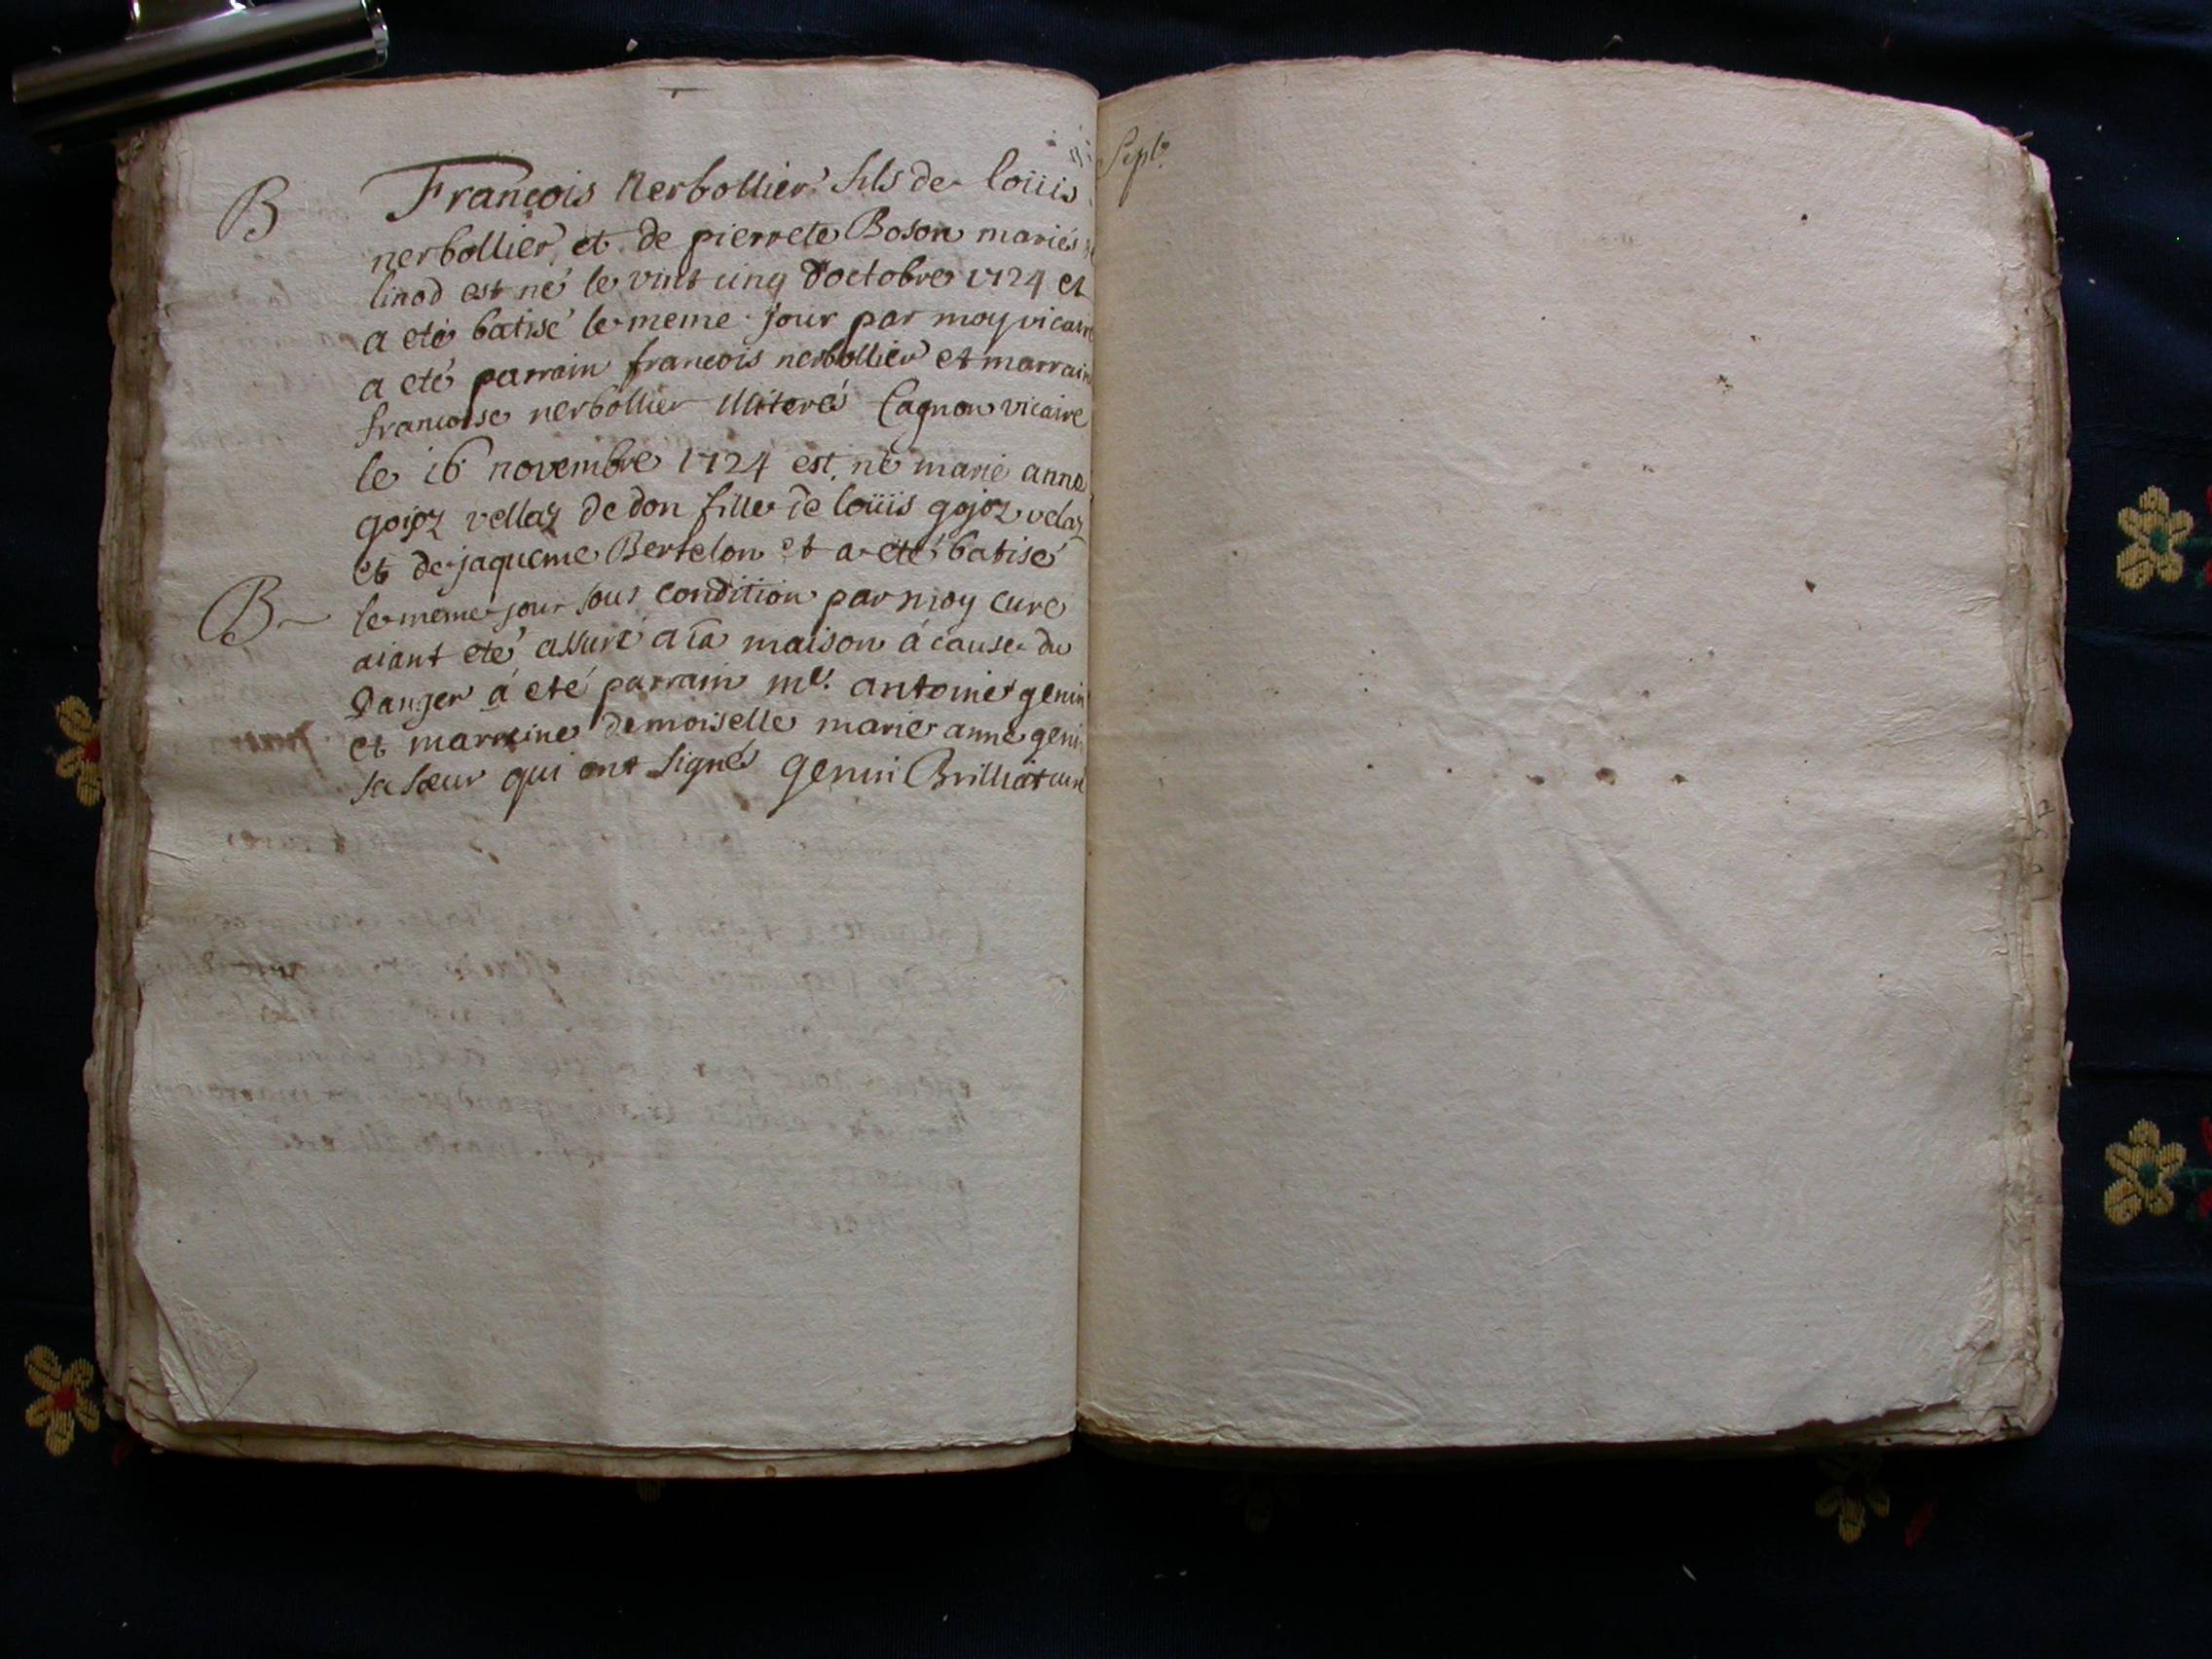 B François Nerbollier fils de loüis
nerbollier et de pierrete Boson mariés
linod est né le vint cinq d'octobre 1724 et
a eté batisé le meme jour par moy vicaire
a eté parrain françois nerbollier et marraine
françoise nerbollier illiterés Cagnon vicaire
le 16 novembre 1724 est né marie anne
gojoz vellaz de don fille de loüis gojoz velaz
et de jaqueme Bertelon et a eté batisé
B le meme jour sous condition par moy curé
aiant eté assuré a la maison á cause du
danger á eté parrain mr. antoine genin
et marraine demoiselle marie anne genin
sa sœur qui ont signés genin Brilliat curé
Septr